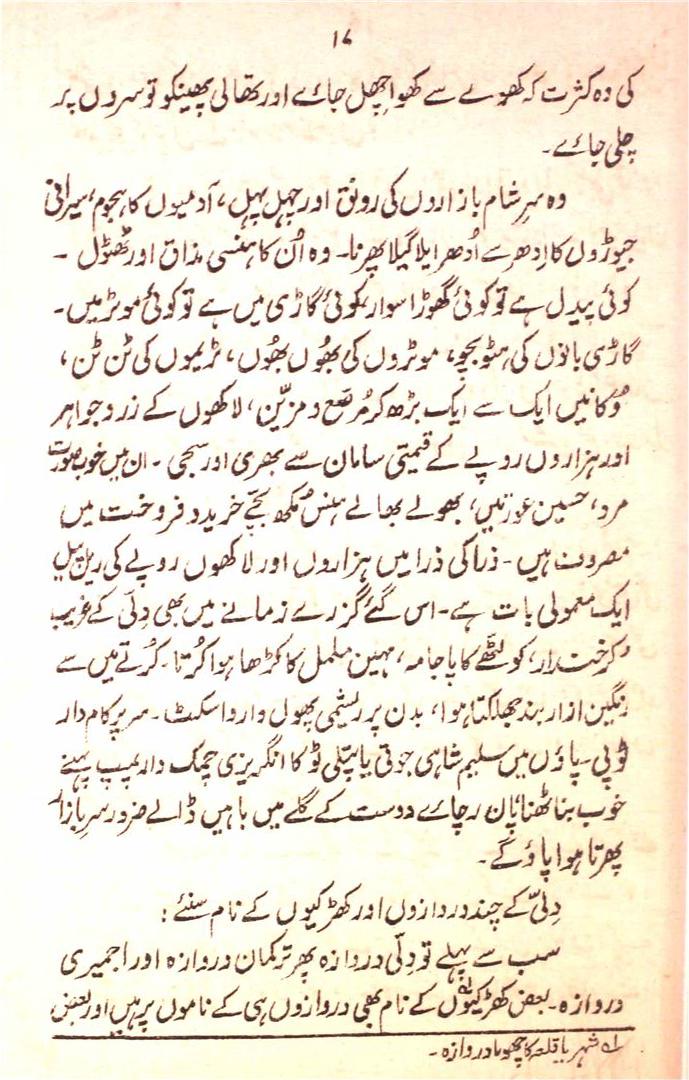 ۱۷
کی وہ کثرت کہ کھوے سے کھوا چھل جائے اور تھالی پھینکو تو سروں پر
چلی جائے۔
وہ سرِ شام بازاروں کی رونق اور چہل پہل، آدمیوں کا ہجوم، سیرانی
جیوڑوں کا اِدھر سے اُدھر ایلا گیلا پھرنا۔ وہ اُن کا ہنسی مذاق اور ٹھٹول ۔
کوئی پیدل ہے تو کوئی گھوڑا سوار، کوئی گاڑی میں ہے تو کوئی موٹر میں۔
گاڑی بانوں کی ہٹو بچو، موٹروں کی بھُوں بھُوں، ٹریموں کی ٹن ٹن،
دُکانیں ایک سے ایک بڑھ کر مُرصّع و مزیّن، لاکھوں کے زر و جواہر
اور ہزاروں روپے کے قیمتی سامان سے بھری اور سجی ۔ ان میں خوبصورت
مرد، حسین عورتیں، بھولے بھالے ہنس مُکھ بچّے خرید و فروخت میں
مصروف ہیں ۔ ذرا کی ذرا میں ہزاروں اور لاکھوں روپے کی ریل پیل
ایک معمولی بات ہے۔ اس گئے گزرے زمانے میں بھی دِلّی کے غریب
کرخندار، کو لٹھے کا پاجامہ، مہین ململ کا کڑھا ہوا کُرتا۔ کُرتے میں سے
رنگین ازار بند جھلکتا ہوا، بدن پر ریشمی پھول دار واسکٹ ۔ سر پر کام دار
ٹوپی۔ پاؤں میں سلیم شاہی جوتی یا پتلی ٹو کا انگریزی چمک دار پمپ پہنے
خوب بنا ٹھنا پان رچائے دوست کے گلے میں باہیں ڈالے ضرور سرِ بازار
پھرتا ہوا پاؤ گے۔
دِلّی کے چند دروازوں اور کھڑکیوں کے نام سنئے :
سب سے پہلے تو دِلّی دروازہ پھر ترکمان دروازہ اور اجمیری
دروازہ۔ بعض کھڑکیوں؂۱ کے نام بھی دروازوں ہی کے ناموں پر ہیں اور بعض
؂۱ شہر یا قلعہ کا چھوٹا دروازہ ۔